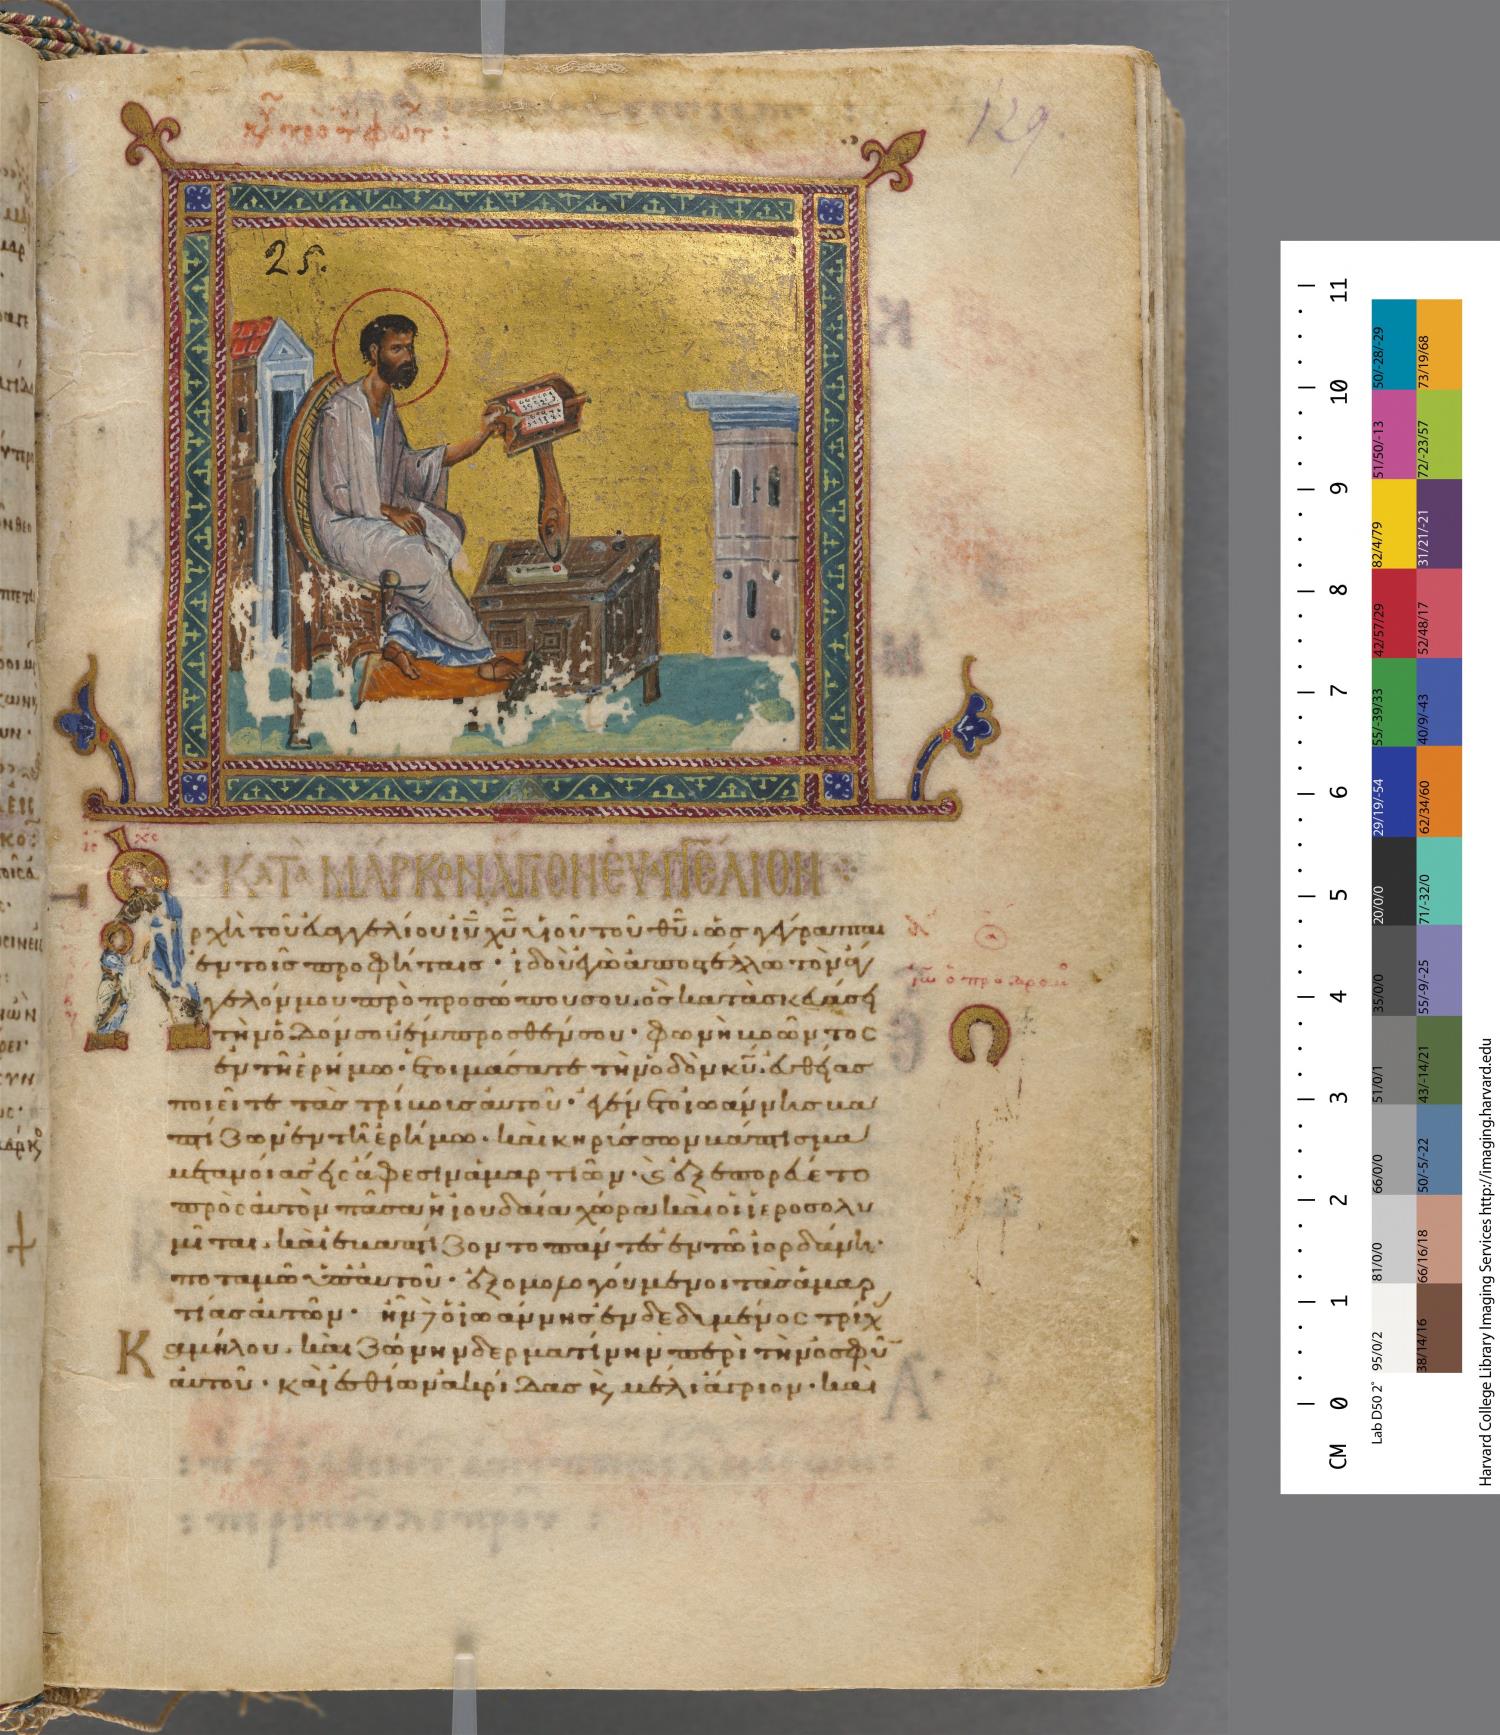 129
κυ προ τ φωτ:
25.
ΚΑΤΑ ΜΑΡΚΟΝ ΑΓΙΟΝ ΕΥΑΓΓΕΛΙΟΝ
ρχὴ τοῦ ἐυαγγελίου ἰῦ χῦ υἱοῦ τοῦ θῦ. ὡς γέγραπται
ἐν τοῖς προφήταις· ἰδοὺ ἐγὼ ἀποστέλλω τὸν ἄγ
γελόν μου πρὸ προσώπου σου. ὃς κατασκευάσει
τὴν ὁδόν σου ἔμπροσθέν σου· φωνὴ βοῶντος
ἐν τῆ ἐρήμω. ἑτοιμάσατε τὴν ὁδὸν κῦ. ἐυθείας
ποιεῖτε τὰς τρίβους ἀυτοῦ· ἐγένετο ἰωάννης βα
πτίζων ἐν τῆ ἐρήμω. καὶ κηρύσσων βάπτισμα
μετανοίας εἰς ἄφεσιν ἁμαρτιῶν· καὶ ἐξεπορέυετο
πρὸς ἀυτὸν πᾶσα ἡ ἰουδαία χώρα καὶ οἱ ἱεροσολυ
μῖται. καὶ ἐβαπτίζοντο πάντες ἐν τῶ ἰορδάνη
ποταμῶ ὑπ' ἀυτοῦ· ἐξομολογούμενοι τὰς ἁμαρ
τίας ἀυτῶν· ἦν δὲ ὁ ἰωάννης ἐνδεδυμένος τρίχ
Κ αμήλου. καὶ ζώνην δερματίνην περὶ τὴν ὀσφῦν
ἀυτοῦ· καὶ ἐσθίων ἀκρίδας κ μέλι ἄγριον· καὶ
ιω ὁ προδρομ
CM 0 1 2 3 4 5 6 7 8 9 10 11
Lab D50 2°
95/0/2
81/0/0
66/0/0
51/0/1
35/0/0
20/0/0
29/19/-54
55/-39/33
42/57/29
82/4/79
51/50/-13
50/-28/-29
38/14/16
66/16/18
50/-5/-22
43/-14/21
55/-9/-25
71/-32/0
62/34/60
40/9/-43
52/48/17
31/21/-21
72/-23/57
73/19/68
Harvard College Library Imaging Services http://imaging.harvard.edu